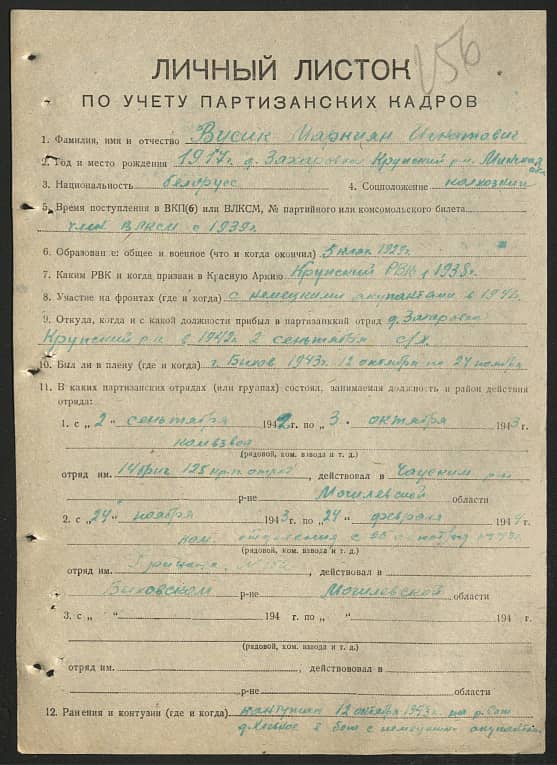 156
ЛИЧНЫЙ ЛИСТОК
ПО УЧЕТУ ПАРТИЗАНСКИХ КАДРОВ
1. Фамилия, имя и отчество Висик Маркиян Игнатович
2. Год и место рождения 1917г. д. Захаровка Крупский р-н. Минская
3. Национальность белорусс 4. Соцположение колхозник
5. Время поступления в ВКП(б) или ВЛКСМ, № партийного или комсомольского билета
член ВЛКСМ с 1939г.
6. Образован е: общее и военное (что и когда окончил) 5 1929г.
7. Каким РВК и когда призван в Красную Армию Крупский РВК 1938г.
8. Участие на фронтах (где и когда) с немецкими окупантами в 194
9. Откуда, когда и с какой должности прибыл в партизанский отряд д. Захаровка
Крупский р-н в 1942г. 2 сеньтября с/х.
10. Был ли в плену (где и когда) г. Быхов 1943г. 12 октября по 24 ноября
11. В каких партизанских отрядах (или группах) состоял, занимаемая должность и район действия
отряда:
1. с „2“ сеньтября 1942 г. по „3“ октября 1943 г.
комвзвод
(рядовой, ком. взвода и т. д.)
отряд им. 14 бриг 125 отряд, действовал в Чауским р-н
р-не Могилевской области
2. с „24“ ноября 1943 г. по „24“ февраля 1944 г.
ком. отделения с
(рядовой, ком. взвода и т. д.)
отряд им. Гришина, действовал в
Быховском р-не Могилевской области
3. с „ “ 194 г. по „ “ 194 г.
(рядовой, ком. взвода и т. д.)
отряд им. , действовал в
р-не области
12. Ранения и контузии (где и когда) контузия 12 октября 1943г. на р. Сож
бою с немецкими окупантами.